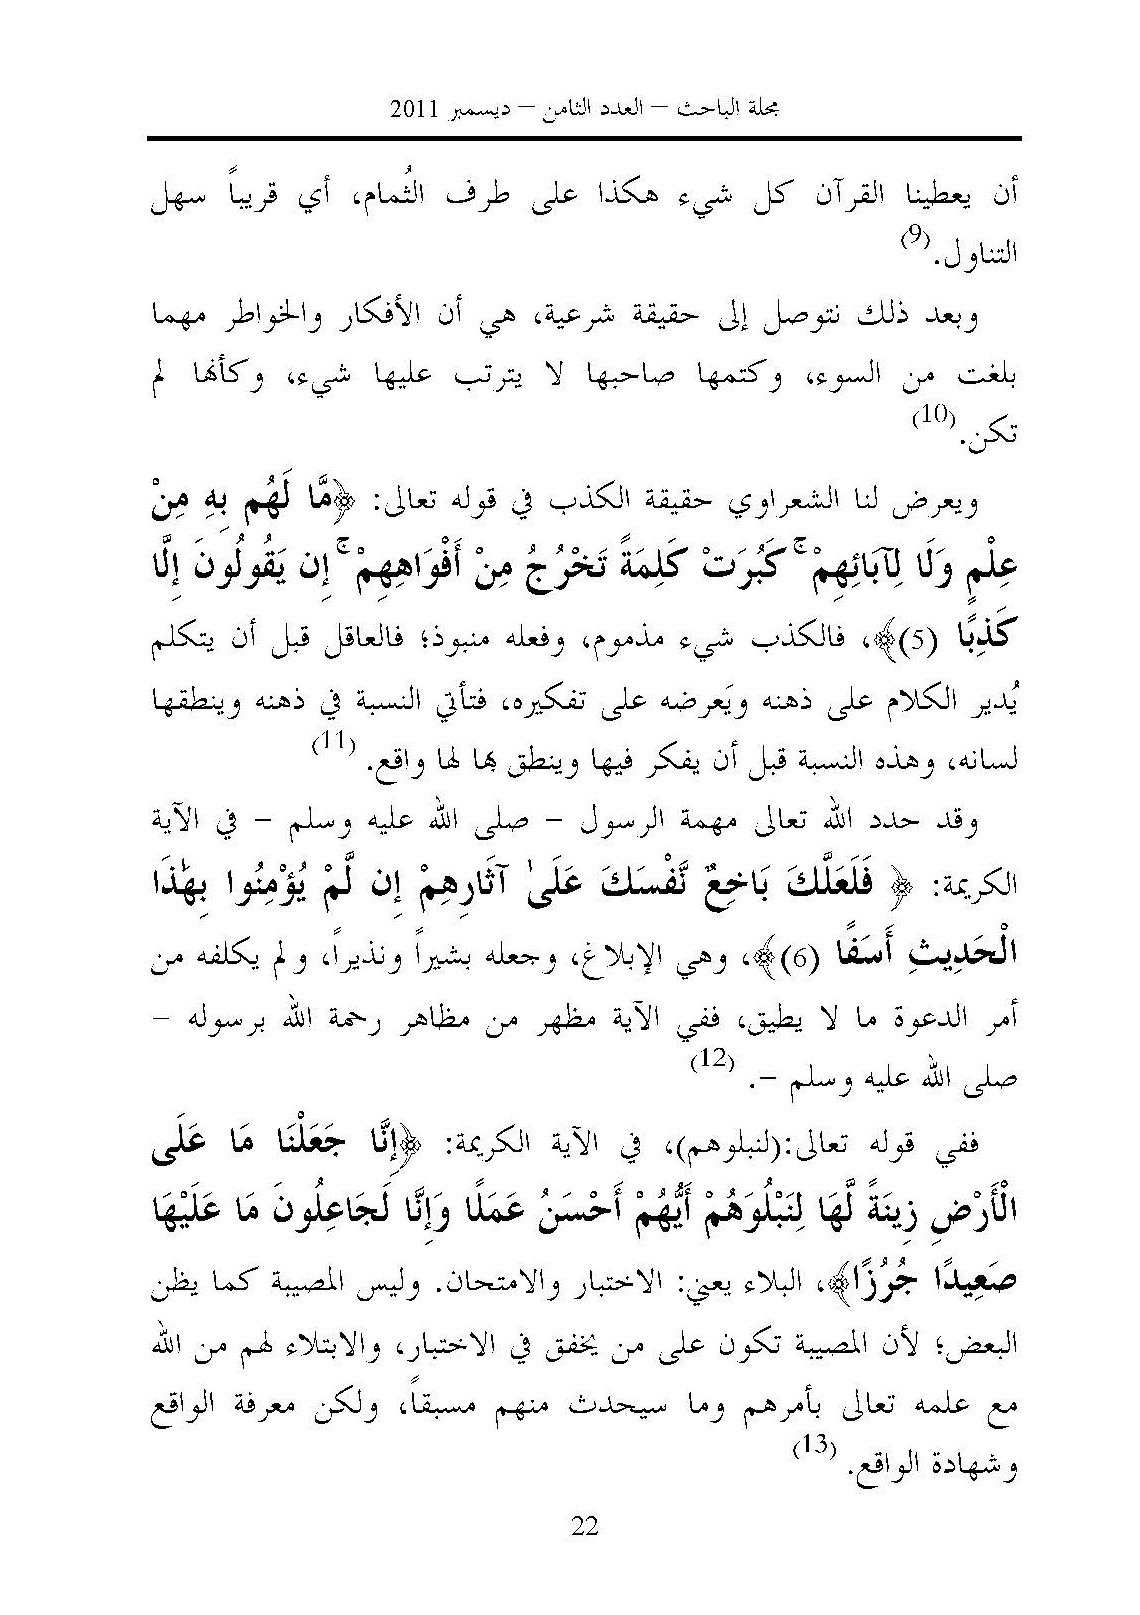 مجلة الباحث – العدد الثامن – ديسمبر 2011
أن يعطينا القرآن كل شيء هكذا على طرف الثُمام، أي قريباً سهل
التناول.(9)
وبعد ذلك نتوصل إلى حقيقة شرعية، هي أن الأفكار والخواطر مهما
بلغت من السوء، وكتمها صاحبها لا يترتب عليها شيء، وكأنها لم
تكن.(10)
ويعرض لنا الشعراوي حقيقة الكذب في قوله تعالى: ﴿مَّا لَهُم بِهِ مِنْ
عِلْمٍ وَلَا لِآبَائِهِمْ ۚ كَبُرَتْ كَلِمَةً تَخْرُجُ مِنْ أَفْوَاهِهِمْ ۚ إِن يَقُولُونَ إِلَّا
كَذِبًا (5)﴾، فالكذب شيء مذموم، وفعله منبوذ؛ فالعاقل قبل أن يتكلم
يُدير الكلام على ذهنه ويَعرضه على تفكيره، فتأتي النسبة في ذهنه وينطقها
لسانه، وهذه النسبة قبل أن يفكر فيها وينطق بها لها واقع. (11)
وقد حدد الله تعالى مهمة الرسول – صلى الله عليه وسلم – في الآية
الكريمة: ﴿ فَلَعَلَّكَ بَاخِعٌ نَّفْسَكَ عَلَىٰ آثَارِهِمْ إِن لَّمْ يُؤْمِنُوا بِهَٰذَا
الْحَدِيثِ أَسَفًا (6)﴾، وهي الإبلاغ، وجعله بشيراً ونذيراً، ولم يكلفه من
أمر الدعوة ما لا يطيق، ففي الآية مظهر من مظاهر رحمة الله برسوله –
صلى الله عليه وسلم –. (12)
ففي قوله تعالى:(لنبلوهم)، في الآية الكريمة: ﴿إِنَّا جَعَلْنَا مَا عَلَى
الْأَرْضِ زِينَةً لَّهَا لِنَبْلُوَهُمْ أَيُّهُمْ أَحْسَنُ عَمَلًا وَإِنَّا لَجَاعِلُونَ مَا عَلَيْهَا
صَعِيدًا جُرُزًا﴾، البلاء يعني: الاختبار والامتحان. وليس المصيبة كما يظن
البعض؛ لأن المصيبة تكون على من يخفق في الاختبار، والابتلاء لهم من الله
مع علمه تعالى بأمرهم وما سيحدث منهم مسبقاً، ولكن معرفة الواقع
وشهادة الواقع. (13)
22